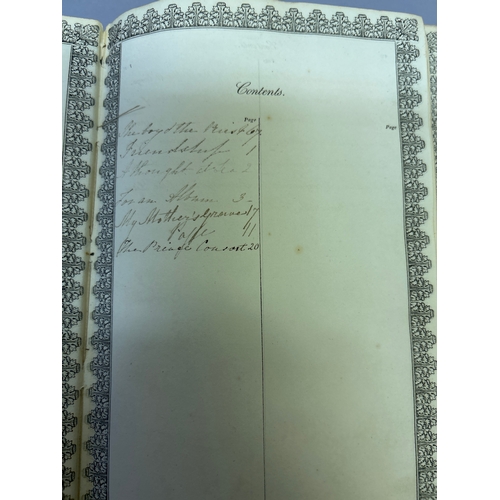 Contents.
Page
Page
the Priest
Friendship 1
A thought 2
For an Album 3
My Mother's Grave 17
11
The Prince Consort 20